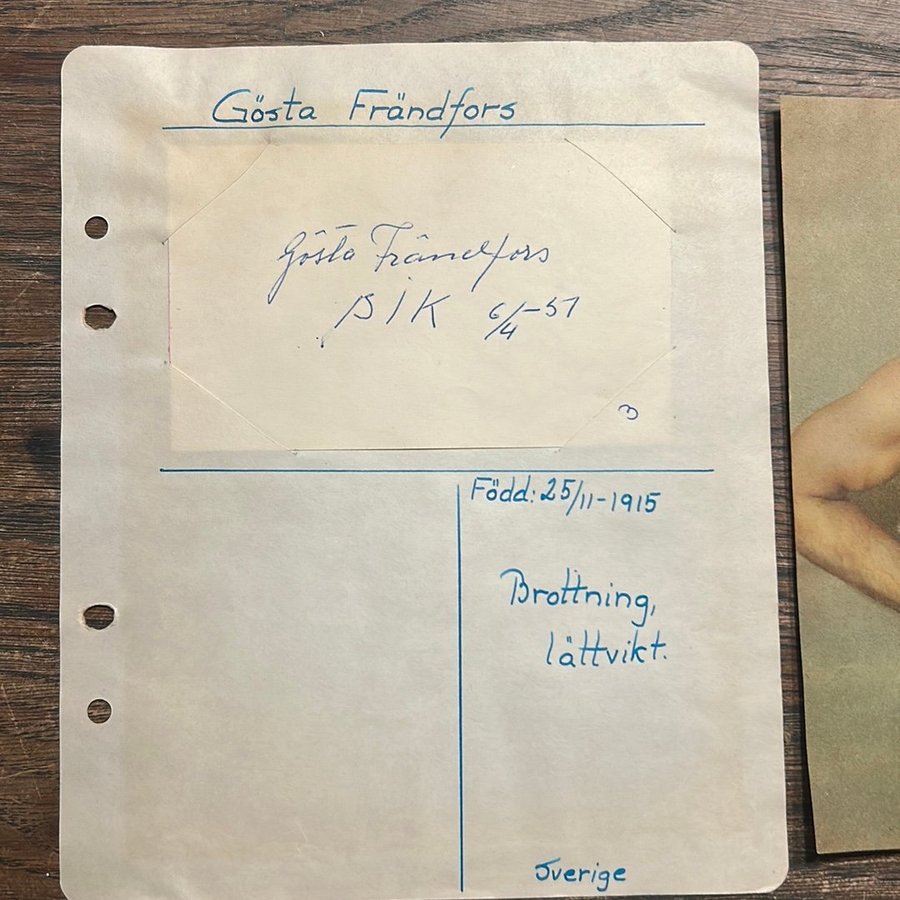 Gösta Frändfors
Gösta Frändfors
BIK 6/4-51
3
Född: 25/11-1915
Brottning,
lättvikt.
Sverige